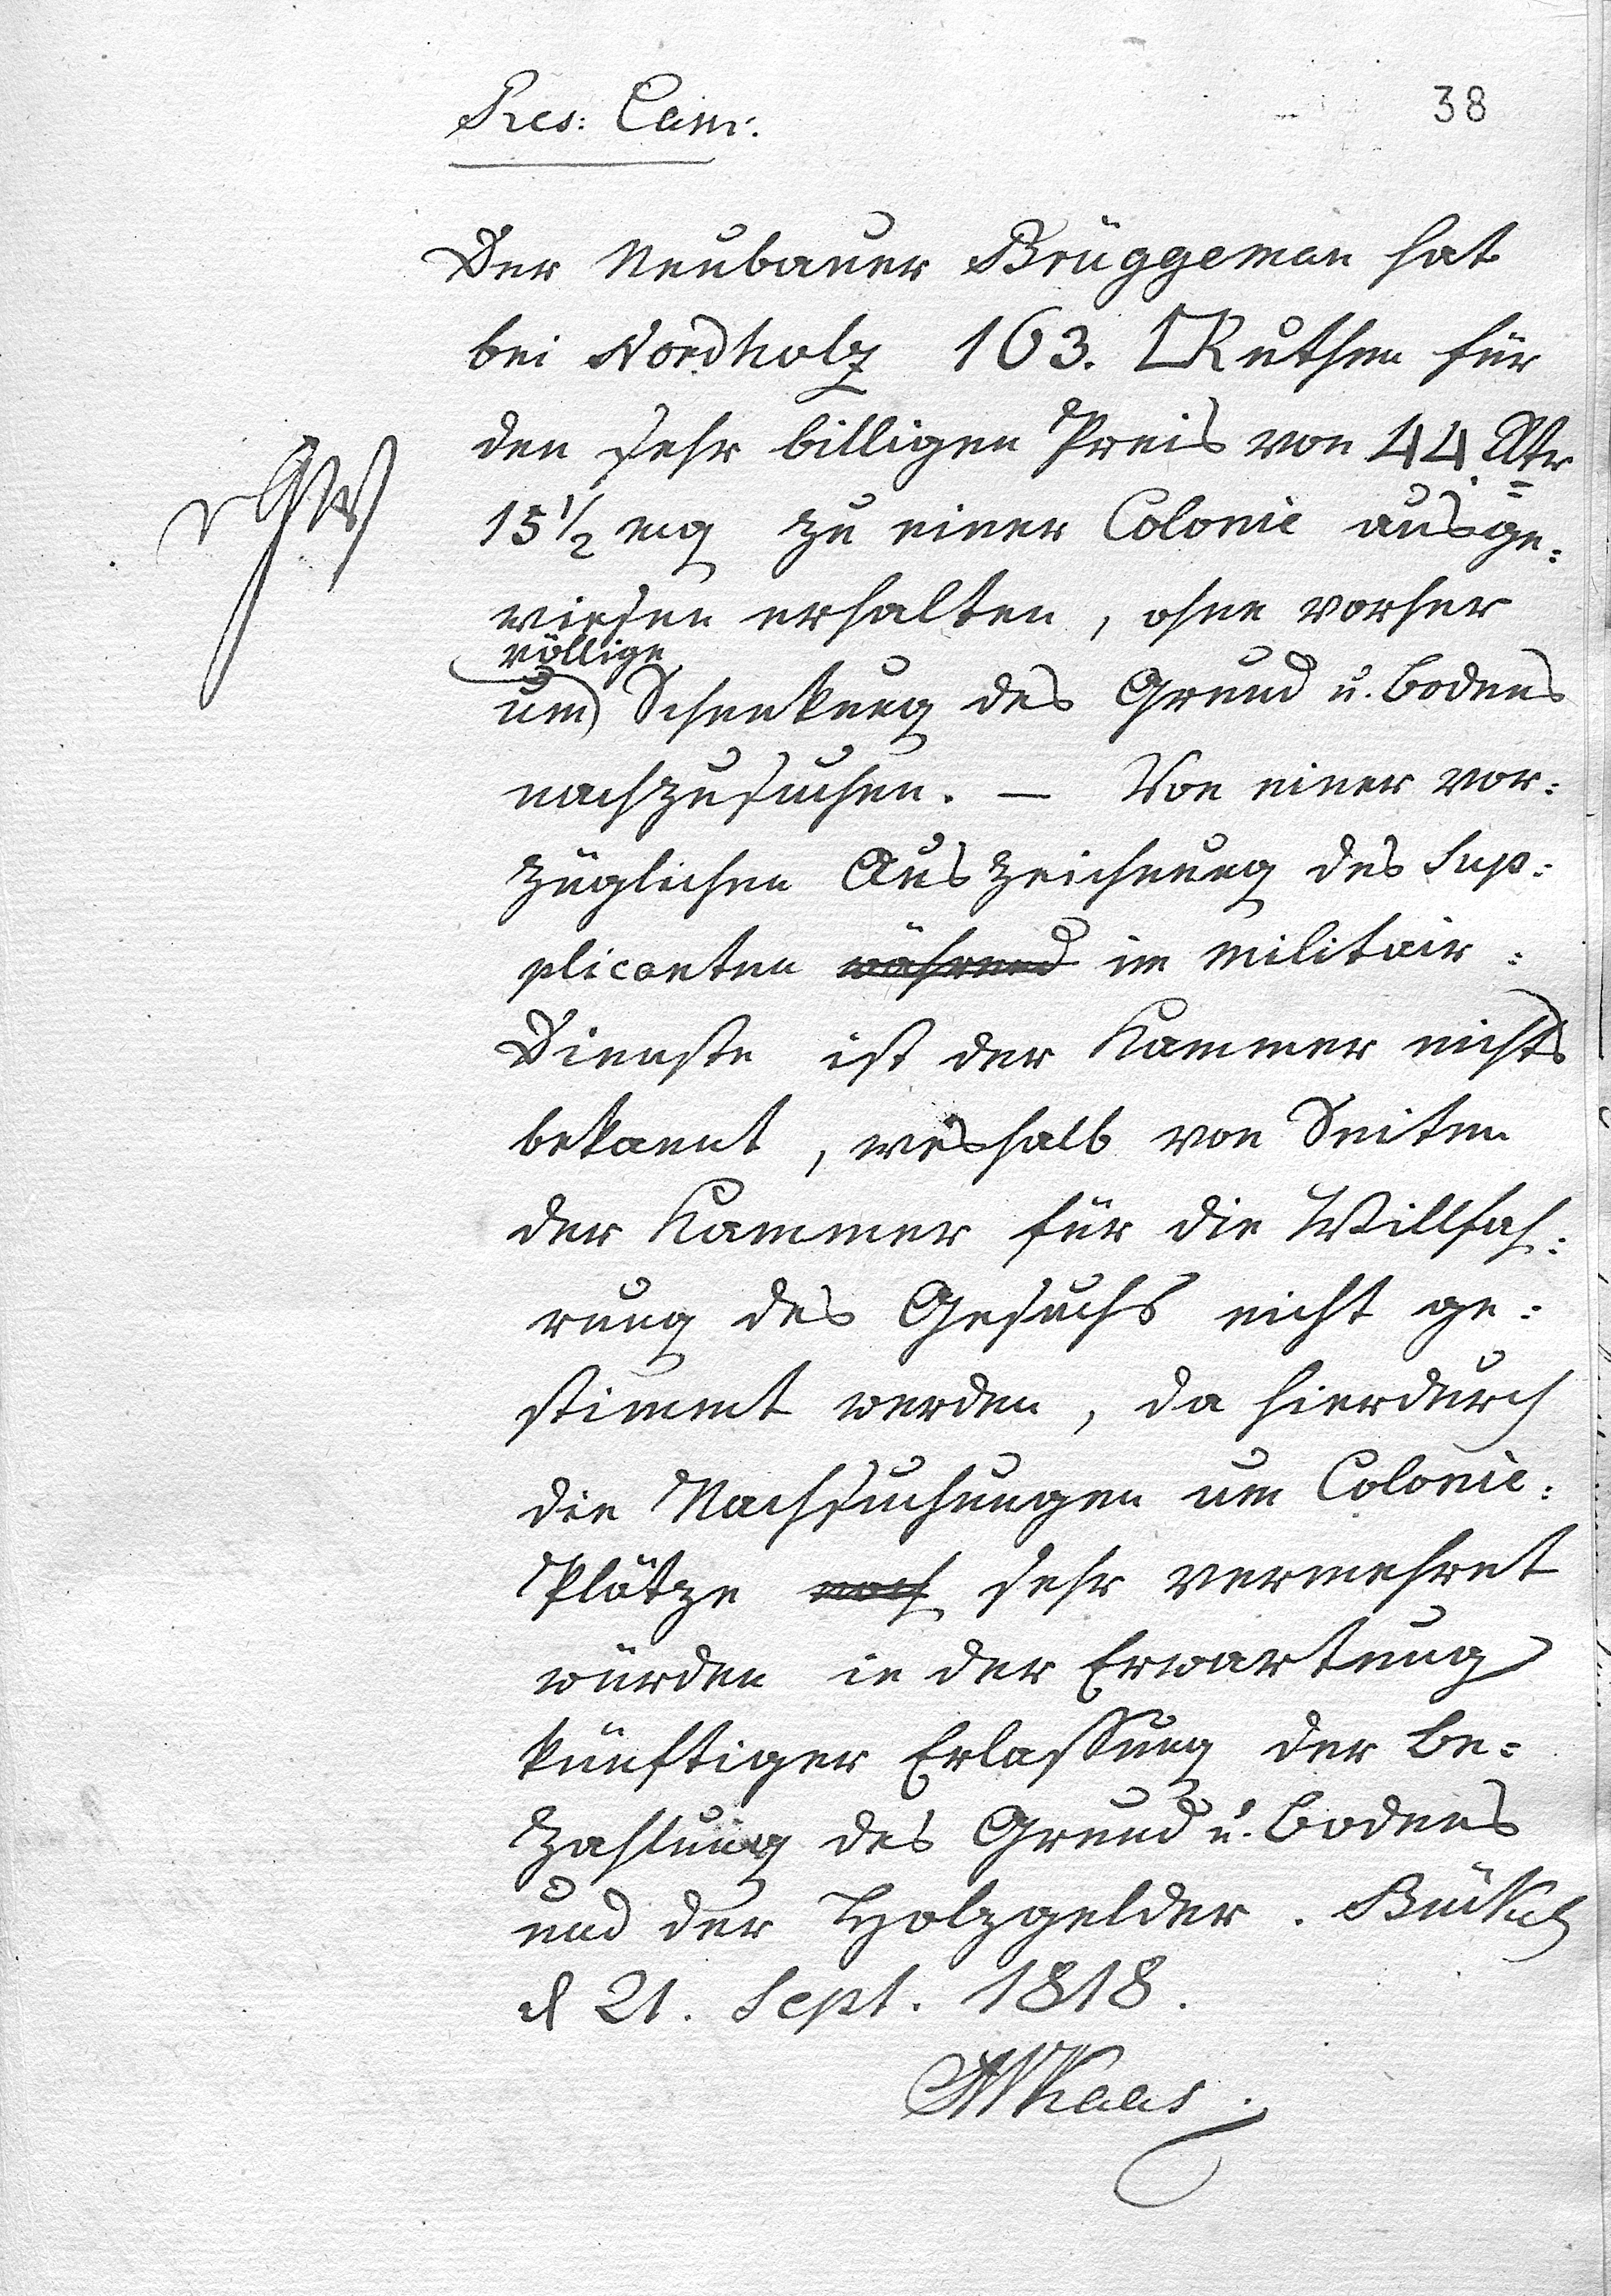 Res: Cam:
38
Der Neubauer Brüggeman hat
bei Nordholz 163. □Ruthen für
den sehr billigen Preis von 44 Rtr
15 1/2 mg zu einer Colonie ausge:
wiesen erhalten, ohne vorher
völlige
um Schenkung des Grund u. Bodens
nachzusuchen. — Von einer vor:
züglichen Auszeichnung des Sup:
plicanten während im Militair:
Dienste ist der Kammer nichts
bekannt, weshalb von Seiten
der Kammer für die Willfah:
rung des Gesuchs nicht ge:
stimmt werden, da hierdurch
die Nachsuchungen um Colonie:
Plätze noch sehr vermehret
würden in der Erwartung
künftiger Erlassung der Be:
zahlung des Grund u. Bodens
und der Holzgelder. Bückeb
d 21. Sept. 1818.